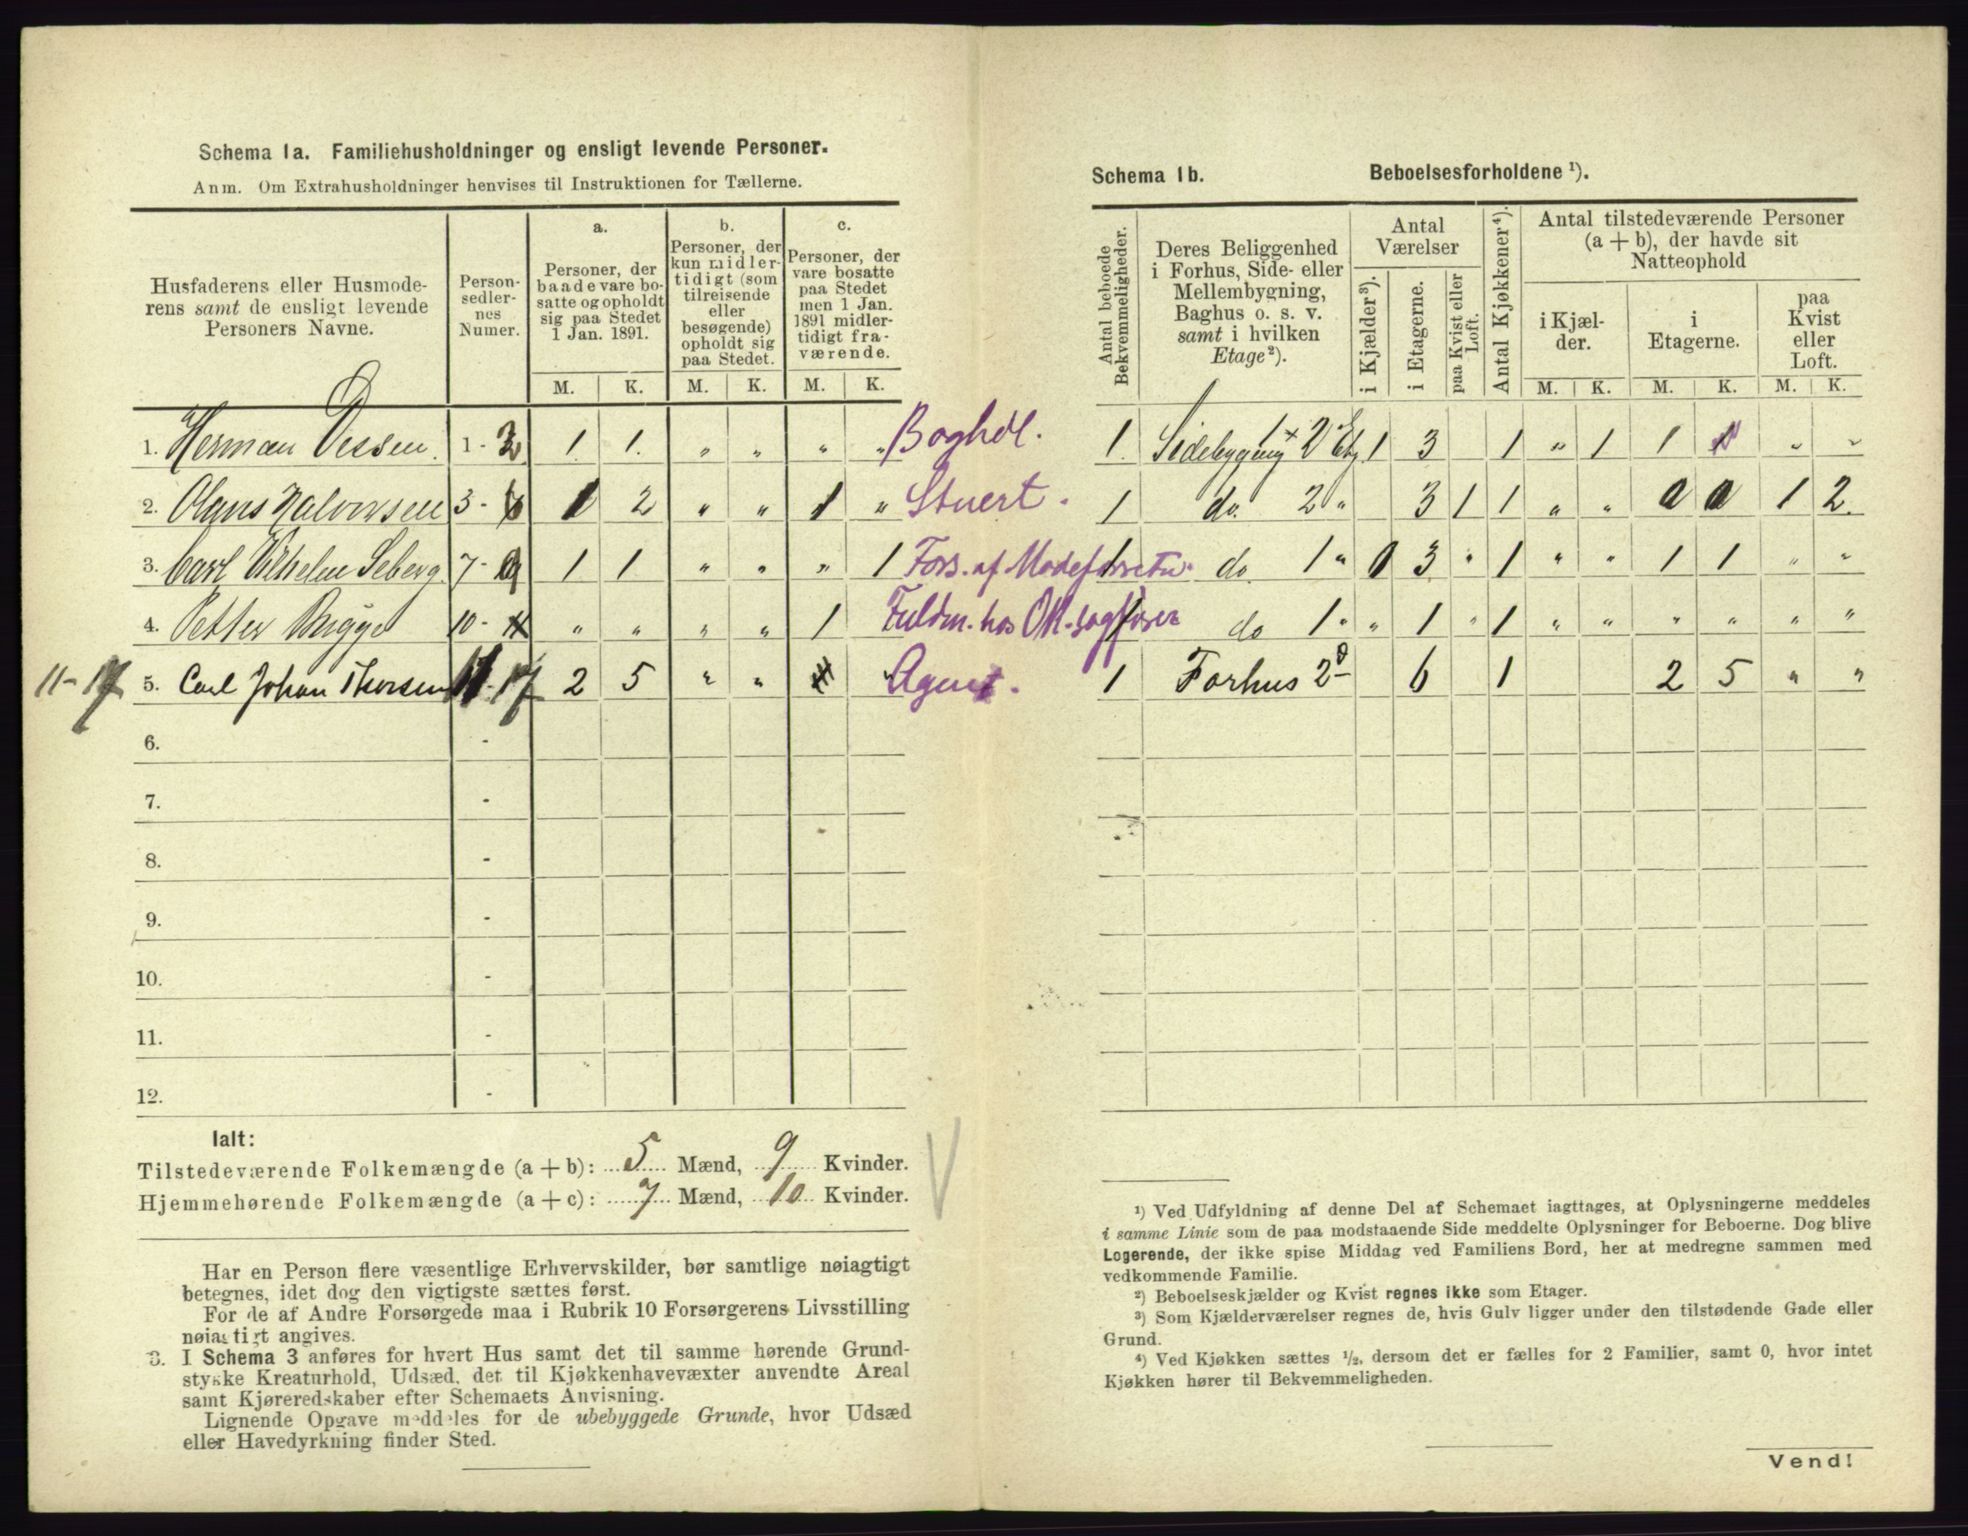 Schema 1a. Familiehusholdninger og ensligt levende Personer.
Anm. Om Extrahusholdninger henvises til Instruktionen for Tællerne.
Husfaderens eller Husmode-
rens samt de ensligt levende
Personers Navne.
Person-
sedler-
nes
Numer.
a.
Personer, der
baade vare bo-
satte og opholdt
sig paa Stedet
1 Jan. 1891.
b.
Personer, der
kun midler-
tidigt (som
tilreisende
eller
besøgende)
opholdt sig
paa Stedet.
c.
Personer, der
vare bosatte
paa Stedet
men 1 Jan.
1891 midler-
tidigt fra-
værende.
M. K. M. K. M. K.
1. Herman Dessen. 1 - 2 1. 1. " " " " Boghdl.
2. Olaus Halvorsen 3 - 6 1 2 " " 1 " Stuert.
3. Carl Vilhelm Seberg. 7 - 9 1 1 " " " 1 Fors. af Modeforretn.
4. Petter Bugge 10 - " " " " 1 Fuldm. hos OR.sagfører
11-17 5. Carl Johan Thorsen 11-17 2 5 " " " Agent.
6. -
7. -
8. -
9. -
10. -
11. -
12. -
Ialt:
Tilstedeværende Folkemængde (a + b): 5 Mænd, 9 Kvinder.
Hjemmehørende Folkemængde (a + c): 7 Mænd, 10 Kvinder.
Har en Person flere væsentlige Erhvervskilder, bør samtlige nøiagtigt
betegnes, idet dog den vigtigste sættes først.
For de af Andre Forsørgede maa i Rubrik 10 Forsørgerens Livsstilling
nøiagtigt angives.
3. I Schema 3 anføres for hvert Hus samt det til samme hørende Grund-
stykke Kreaturhold, Udsæd, det til Kjøkkenhavevæxter anvendte Areal
samt Kjøreredskaber efter Schemaets Anvisning.
Lignende Opgave meddeles for de ubebyggede Grunde, hvor Udsæd
eller Havedyrkning finder Sted.
Schema 1b. Beboelsesforholdene ¹).
Antal beboede
Bekvemmeligheder.
Deres Beliggenhed
i Forhus, Side- eller
Mellembygning,
Baghus o. s. v.
samt i hvilken
Etage²).
Antal
Værelser
i Kjælder³).
i Etagerne.
paa Kvist eller
Loft.
Antal Kjøkkener⁴).
Antal tilstedeværende Personer
(a + b), der havde sit
Natteophold
i Kjæl-
der.
i
Etagerne.
paa
Kvist
eller
Loft.
M. K. M. K. M. K.
1. Sidebygning 1 + 2 Etg. 1 3 1 " 1 1 " "
1 do. 2 " 3 1 1 " " 0 0 1 2.
1 do 1 " 0 3 " 1 " " 1 1 " "
1 do 1 " " 1 " 1 " " " " " "
1 Forhus 2 - 6 1 2 5 " "
¹) Ved Udfyldning af denne Del af Schemaet iagttages, at Oplysningerne meddeles
i samme Linie som de paa modstaaende Side meddelte Oplysninger for Beboerne. Dog blive
Logerende, der ikke spise Middag ved Familiens Bord, her at medregne sammen med
vedkommende Familie.
²) Beboelseskjælder og Kvist regnes ikke som Etager.
³) Som Kjælderværelser regnes de, hvis Gulv ligger under den tilstødende Gade eller
Grund.
⁴) Ved Kjøkken sættes ½, dersom det er fælles for 2 Familier, samt 0, hvor intet
Kjøkken hører til Bekvemmeligheden.
Vend!